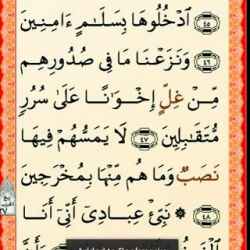 ٤٥ ٱدْخُلُوهَا بِسَلَٰمٍ ءَامِنِينَ
٤٦ وَنَزَعْنَا مَا فِى صُدُورِهِم
مِّنْ غِلٍّ إِخْوَٰنًا عَلَىٰ سُرُرٍ
مُّتَقَٰبِلِينَ ٤٧ لَا يَمَسُّهُمْ فِيهَا
نَصَبٌ وَمَا هُم مِّنْهَا بِمُخْرَجِينَ
٤٨ ۞ نَبِّئْ عِبَادِىٓ أَنِّىٓ أَنَا
وَأَنَّ